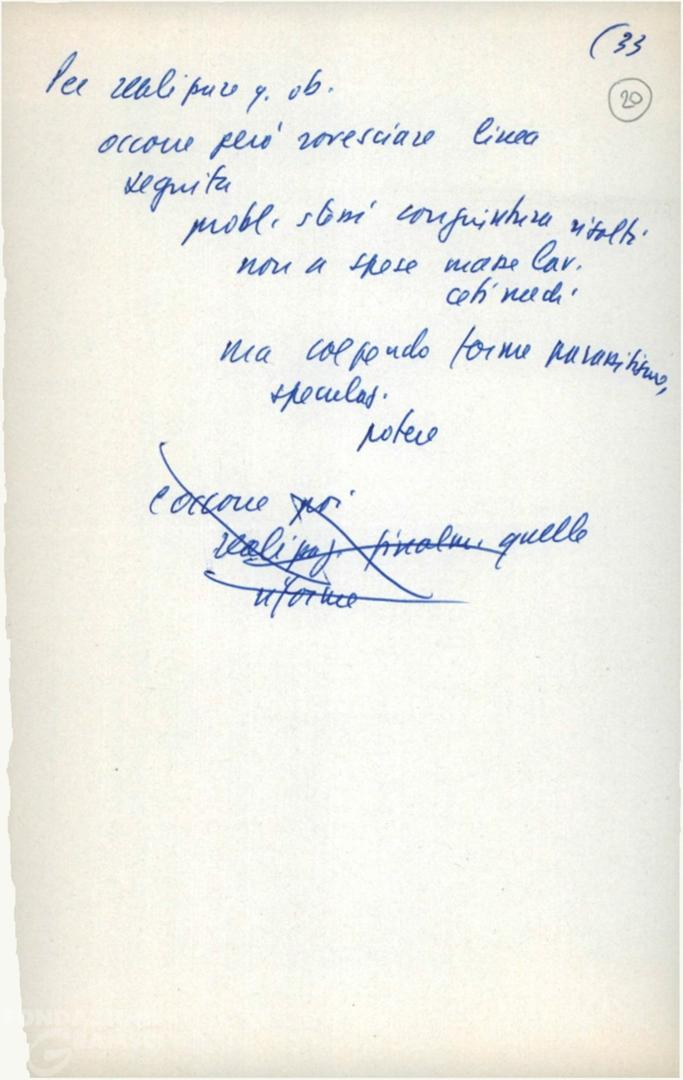 (33
20
Per realizzare q. ob.
occorre però rovesciare linea
seguita
probl. stessi congiuntura risolti
non a spese masse lav.
ceti medi
ma colpendo forme parassitismo,
speculaz.
potere
e occorre poi
realizzaz. finalm. quelle
riforme
FONDAZIONE
GRAMSCI